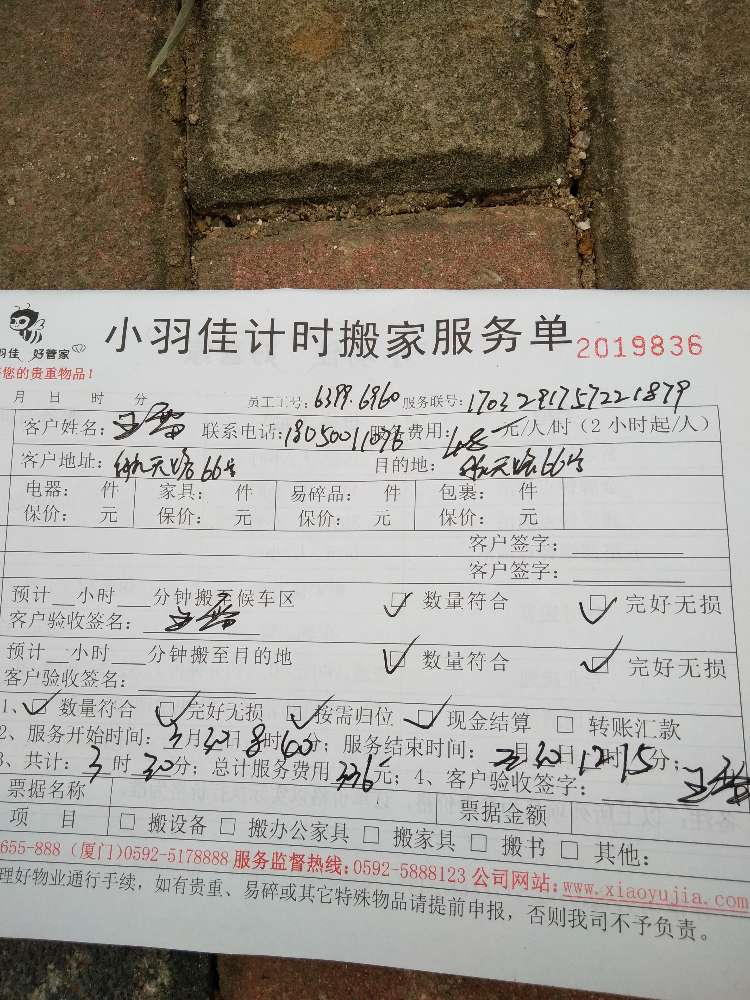 小羽佳计时搬家服务单 2019836
羽佳 好管家
您的贵重物品！
月 日 时 分 员工工号：6399.6960 服务联号：1703291757221879
客户姓名： 联系电话： 服务费用：48元/人/时（2小时起/人）
客户地址：航天路66号 目的地：航天路66号
电器： 件 家具： 件 易碎品： 件 包裹： 件
保价： 元 保价： 元 保价： 元 保价： 元
客户签字：
客户签字：
预计__小时__分钟搬至候车区 □ 数量符合 □ 完好无损
客户验收签名：
预计__小时__分钟搬至目的地 □ 数量符合 □ 完好无损
客户验收签名：
1、□ 数量符合 □ 完好无损 □ 按需归位 □ 现金结算 □ 转账汇款
2、服务开始时间：3月30日8时60分；服务结束时间：3月30日12时15分；
3、共计：3时30分；总计服务费用336元；4、客户验收签字：
票据名称 票据金额
项 目 □ 搬设备 □ 搬办公家具 □ 搬家具 □ 搬书 □ 其他：
655-888（厦门）0592-5178888 服务监督热线：0592-5888123 公司网站：www.xiaoyujia.com
理好物业通行手续，如有贵重、易碎或其它特殊物品请提前申报，否则我司不予负责。